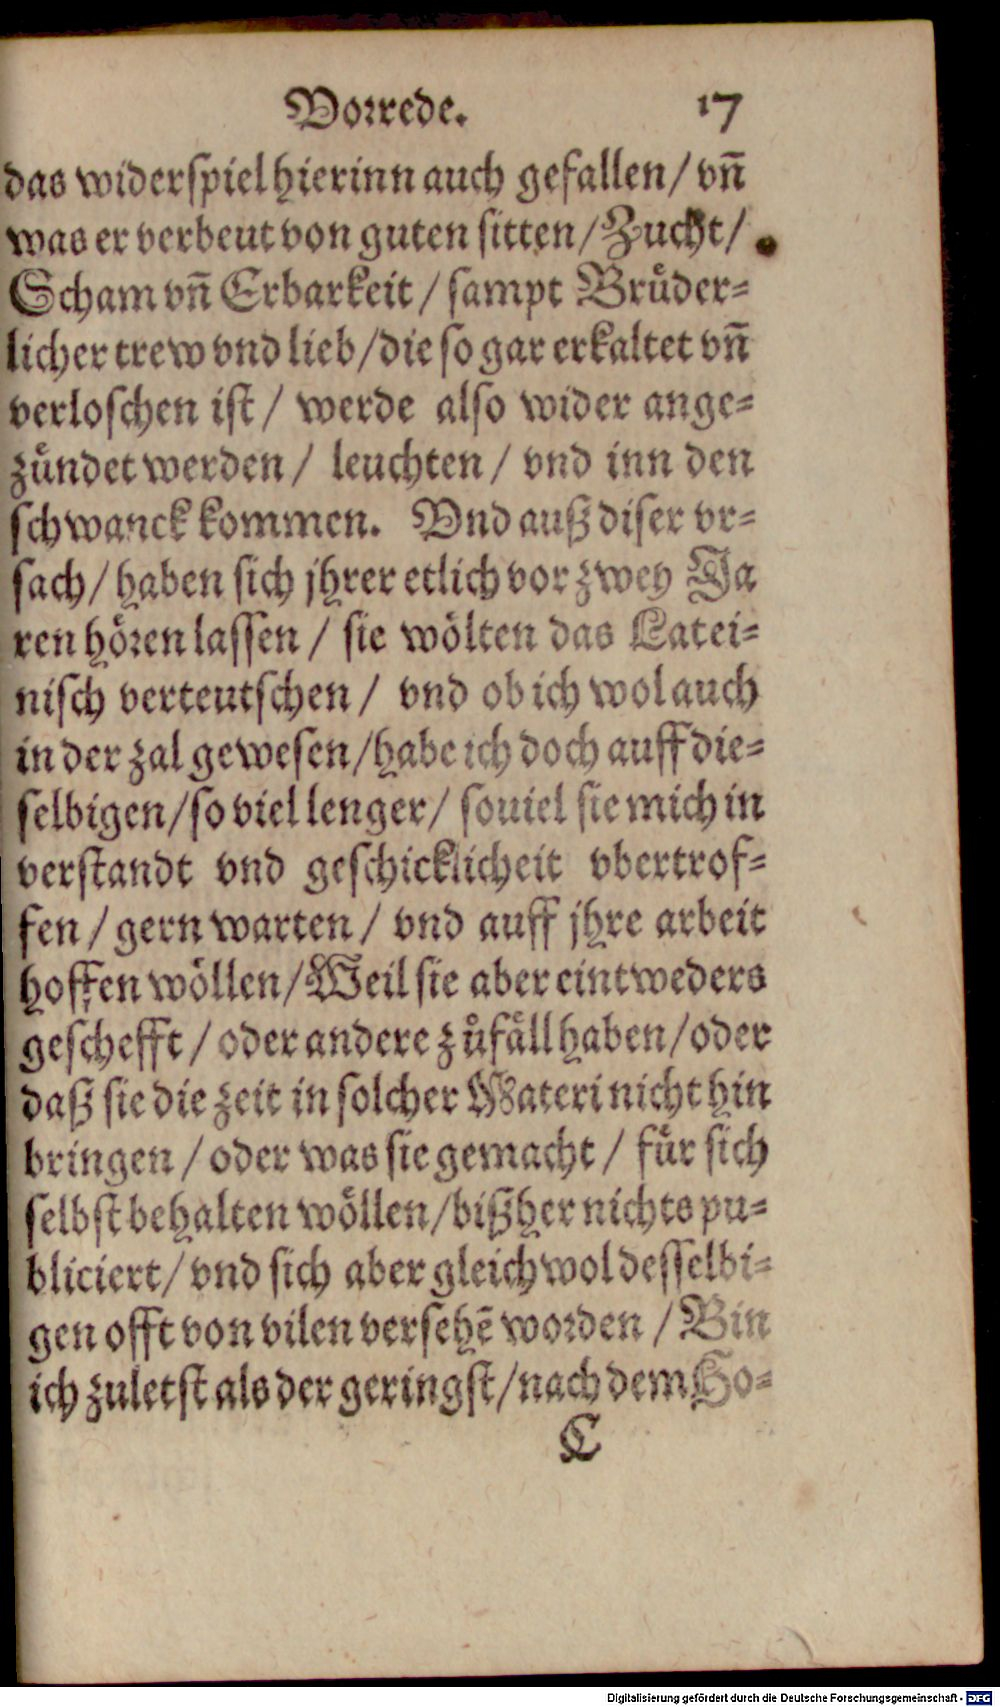 Vorrede. 17
das widerspiel hierinn auch gefallen / vn̄
was er verbeut von guten sitten / Zucht /
Scham vn̄ Erbarkeit / sampt Bruͤder-
licher trew vnd lieb / die so gar erkaltet vn̄
verloschen ist / werde also wider ange-
zuͤndet werden / leuchten / vnd inn den
schwanck kommen. Vnd auß diser vr-
sach / haben sich jhrer etlich vor zwey Ja
ren hoͤren lassen / sie woͤlten das Latei-
nisch verteutschen / vnd ob ich wol auch
in der zal gewesen / habe ich doch auff die-
selbigen / so viel lenger / souiel sie mich in
verstandt vnd geschicklicheit vbertrof-
fen / gern warten / vnd auff jhre arbeit
hoffen woͤllen / Weil sie aber eintweders
geschefft / oder andere zůfaͤll haben / oder
daß sie die zeit in solcher Materi nicht hin
bringen / oder was sie gemacht / fuͤr sich
selbst behalten woͤllen / bißher nichts pu-
bliciert / vnd sich aber gleichwol desselbi-
gen offt von vilen versehē worden / Bin
ich zuletst als der geringst / nach dem Ho-
C
Digitalisierung gefördert durch die Deutsche Forschungsgemeinschaft - DFG